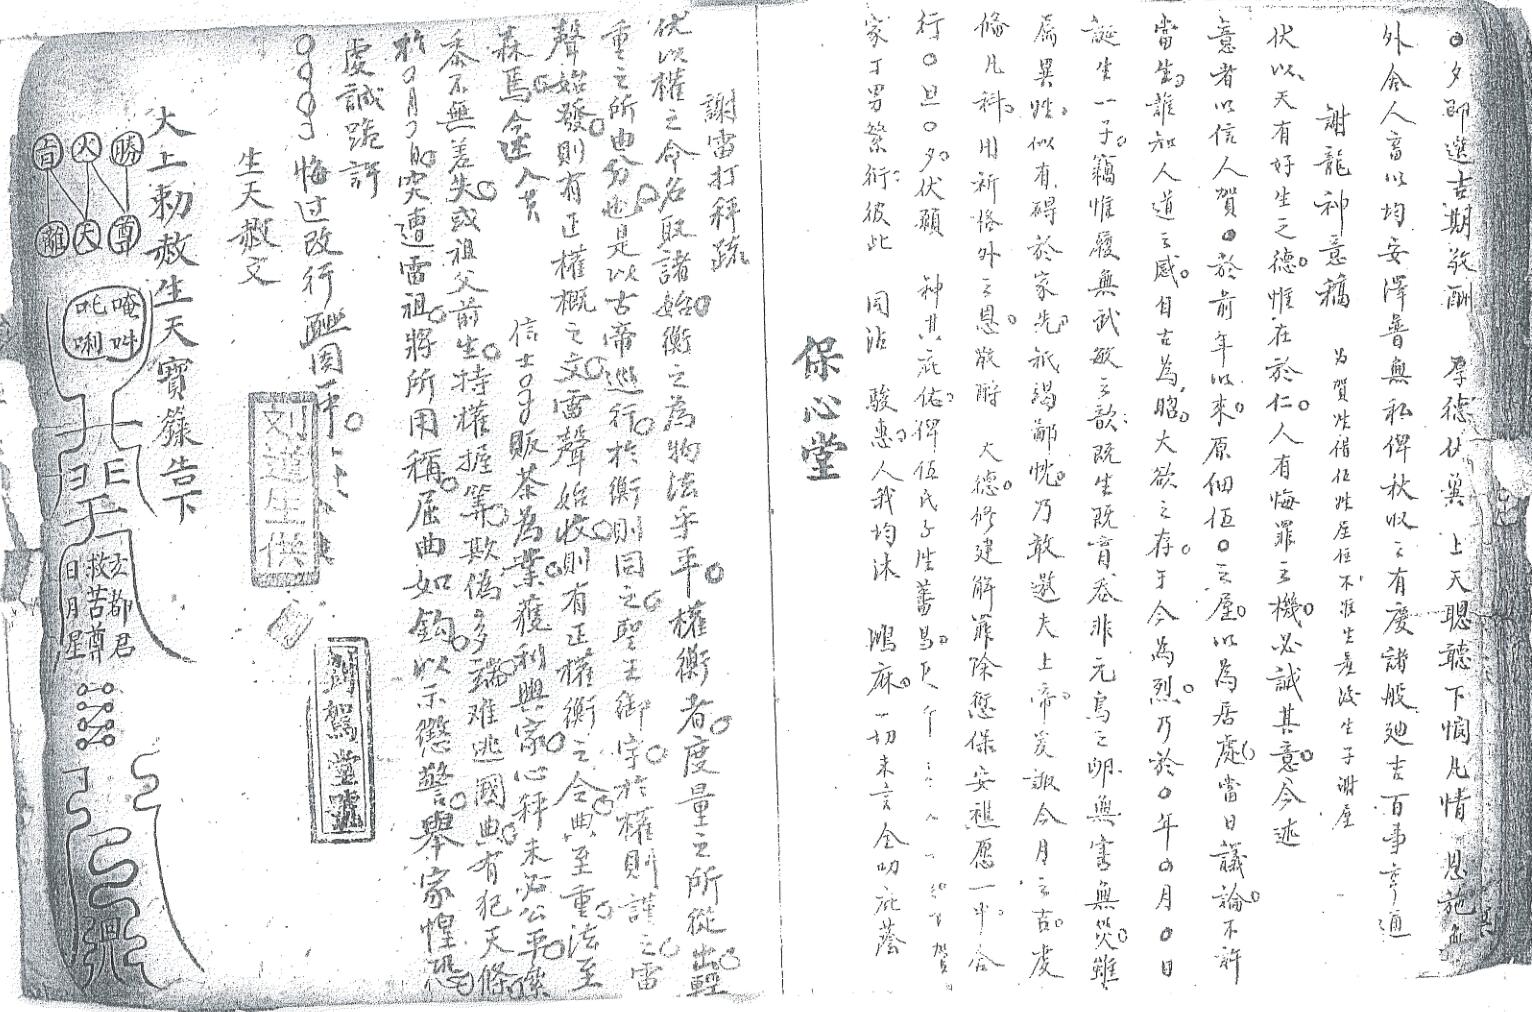 〇夕即選吉期敬酬 厚德伏冀 上天聰聽下憫凡情 恩施無
外舍人畜以均安澤普無私俾秋收之有慶諸般迪吉百事亨通
謝龍神意稿
伏以天有好生之德惟在於仁人有悔罪之機必誠其意今述
意者以信人賀〇於前年以來原佃伍〇之屋以為居處當日議論不許
當生誰知人道之感自古為昭大欲之存于今為烈乃於〇年〇月〇日
誕生一子竊惟履無武敏之歆既生既育卷非元鳥之卵無害無災雖
屬異姓似有碍於家先祇竭鄙忱乃敢邀夫上帝爰諏今月之吉虔
俻凡科用祈格外之恩敬酧 大德修建解罪除愆保安醮愿一中合
行〇旦〇夕伏願 神其庇佑俾伍氏子姓蕃昌
家丁男繁衍彼此 同沾 駿惠人我均沐 鴻庥一切未言全叨庇蔭
保心堂
謝雷打秤疏
伏以權之命名取諸始衡之為物法乎平權衡者度量之所從出輕
重之所由分也是以古帝巡行於衡則同之聖王御宇於權則謹之雷
聲始發則有正權概之文雷聲始收則有正權衡之令典至重法至
森焉今述入貫 信士〇〇販茶為業獲利興家心秤未必公平係
黍不無差失或祖父前生持權握筭欺偽多端难逃國典有犯天條
於〇月〇日突遭雷祖將所用稱屈曲如鈎以示懲警舉家惶恐
虔誠跪許
〇〇〇〇悔过改行醮
刘道生供
劉駕堂號
生天赦文
大上勅赦生天寶籙告下
勝 火 言
尊 大 離
唵吽
吒唎
玄都君
救苦尊
日月星